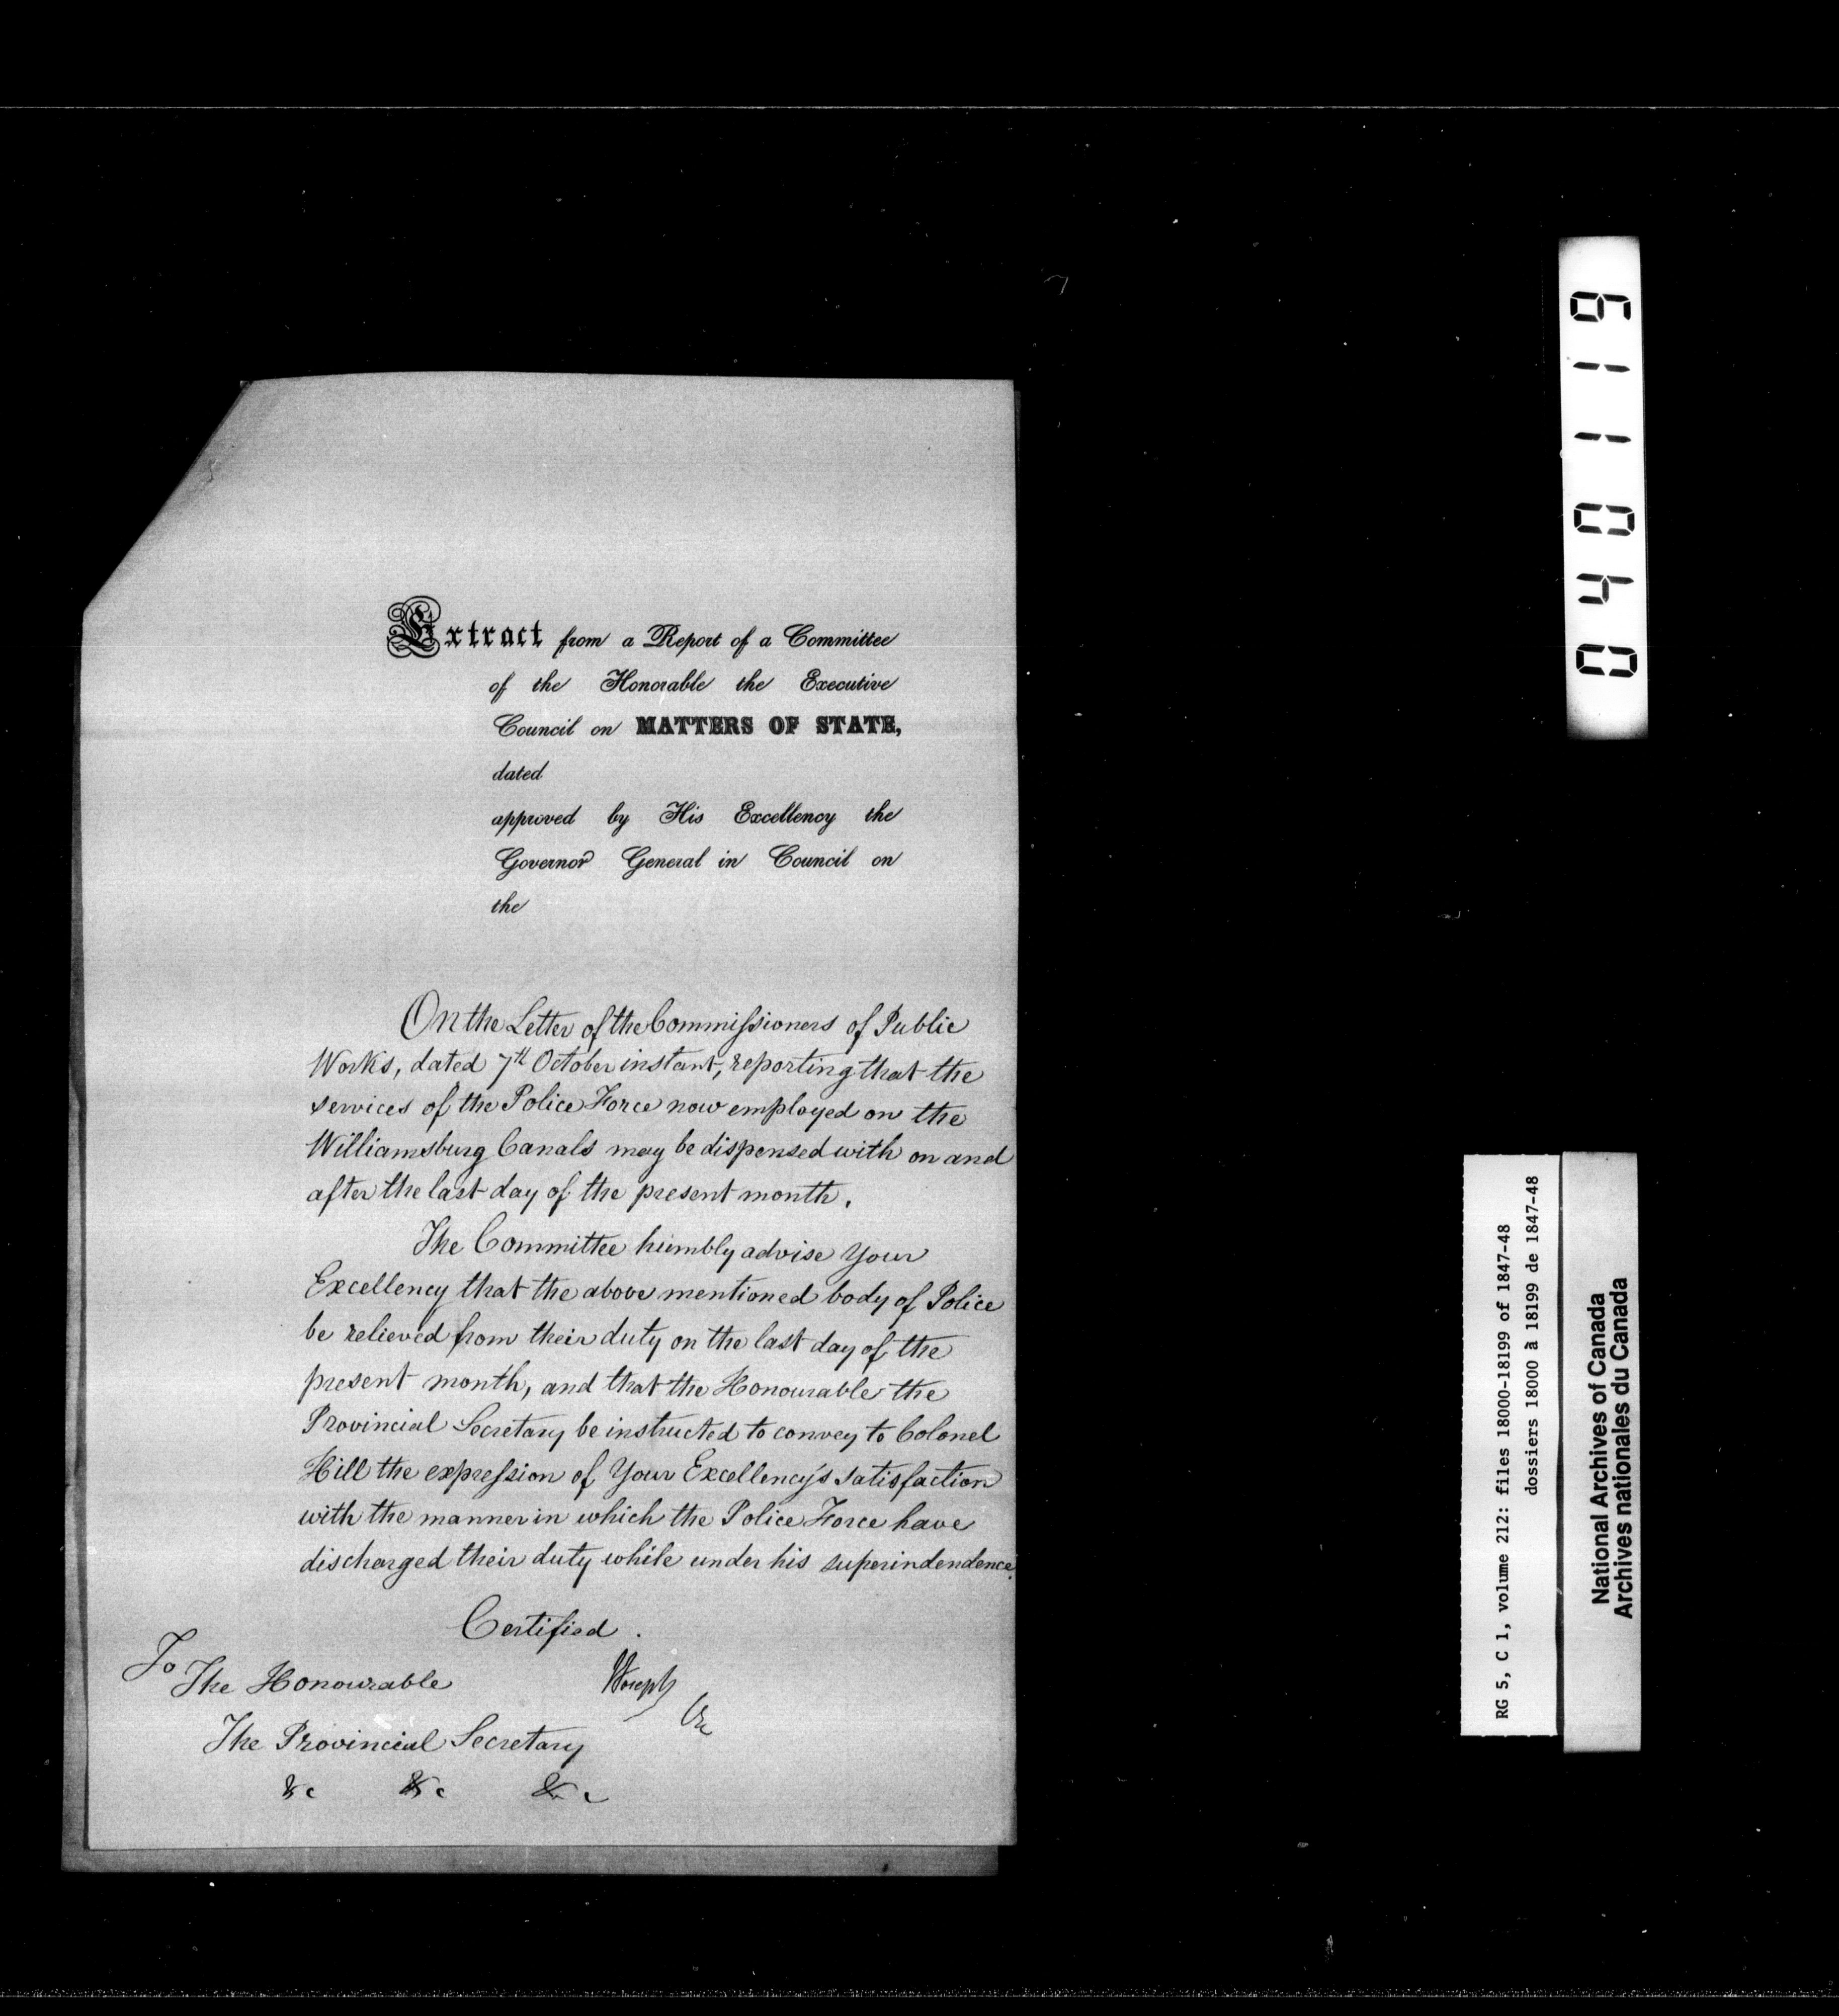 Extract from a Report of a Committee
of the Honorable the Executive
Council on MATTERS OF STATE,
dated
approved by His Excellency the
Governor General in Council on
the
On the Letter of the Commissioners of Public
Works, dated 7th October instant, reporting that the
services of the Police Force now employed on the
Williamsburg Canals may be dispensed with on and
after the last day of the present month.
The Committee humbly advise Your
Excellency that the above mentioned body of Police
be relieved from their duty on the last day of the
present month, and that the Honourable the
Provincial Secretary be instructed to convey to Colonel
Hill the expression of Your Excellency's satisfaction
with the manner in which the Police Force have
discharged their duty while under his superindendence.
Certified.
To
The Honourable
The Provincial Secretary
&c &c &c
040119
RG 5, C 1, volume 212: files 18000-18199 of 1847-48
dossiers 18000 à 18199 de 1847-48
National Archives of Canada
Archives nationales du Canada